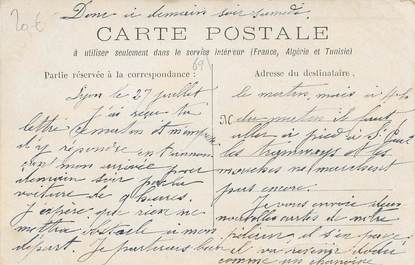 20 €
Donc à demain soir samedi.
CARTE POSTALE
à utiliser seulement dans le service intérieur (France, Algérie et Tunisie)
Partie réservée à la correspondance :
69
Adresse du destinataire.
Lyon le 27 juillet
J'ai reçu ta
lettre ce matin et m'empresse
d'y répondre en t'annon
çant mon arrivée pour
demain soir par la
voiture de 9 heures.
J'espère que rien ne
mettra obstacle à mon
départ. Je partirais bien
le matin, mais à
M du matin il faut
aller à pied à St Paul
les tramways et les
mouches ne marchent
pas encore.
Je vous envoie
nouvelles cartes de notre
il s'en
il va revenir dodu
comme un chanoine